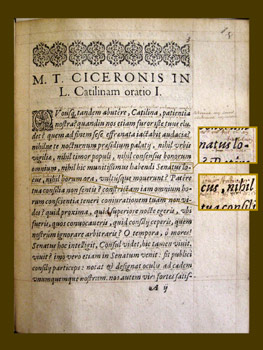 M. T. CICERONIS IN
L. Catilinam oratio I.
Vousq; tandem abutêre, Catilina, patientia
nostra? quandiu nos etiam furor iste tuus elu
det? quem ad finem sese effrenata iactabit audacia?
nihilne te nocturnum præsidium palatij, nihil vrbis
vigiliæ, nihil timor populi, nihil consensus bonorum
omnium, nihil hic munitissimus habendi Senatus lo-
cus, nihil horum ora, vultusque mouerunt? Patere
tua consilia non sentis? constrictam iam omnium ho-
rum conscientia teneri coniurationem tuam non vi-
des? quid proxima, quid superiore nocte egeris, vbi
fueris, quos conuocaueris, quid consilij ceperis, quem
nostrûm ignorare arbitraris? O tempora, ô mores!
Senatus hoc intelligit, Consul videt, hic tamen viuit.
viuit? imò verò etiam in Senatum venit: fit publici
consilij particeps: notat & designat oculis ad cædem
vnumquemque nostrûm. nos autem viri fortes satis-
A ij
natus lo-
? Patere
cus, nihil
tua consili